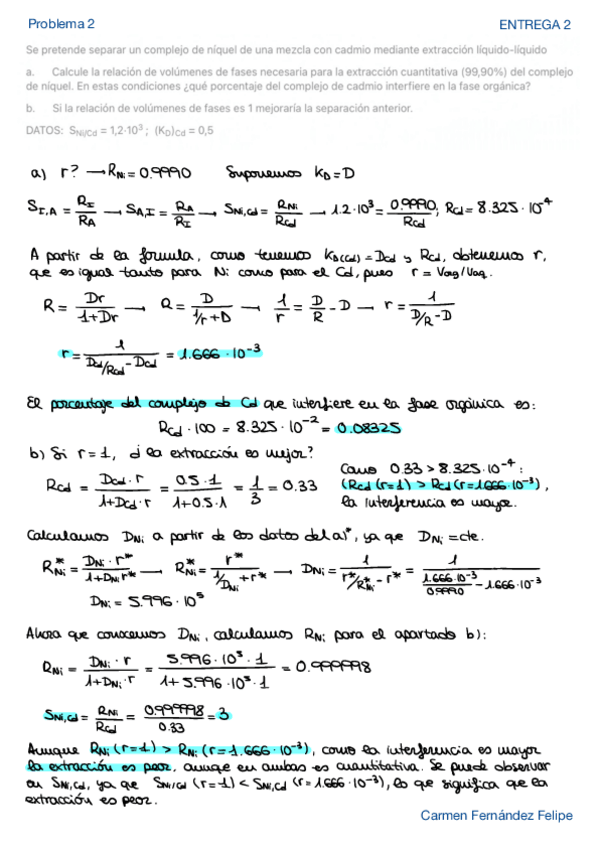 Problema 2
ENTREGA 2
Se pretende separar un complejo de níquel de una mezcla con cadmio mediante extracción líquido-líquido
a. Calcule la relación de volúmenes de fases necesaria para la extracción cuantitativa (99,90%) del complejo
de níquel. En estas condiciones ¿qué porcentaje del complejo de cadmio interfiere en la fase orgánica?
b. Si la relación de volúmenes de fases es 1 mejoraría la separación anterior.
DATOS: S_Ni/Cd = 1,2·10³ ; (K_D)_Cd = 0,5
a) r? → R_Ni = 0.9990 Suponemos K_D = D
S_I,A = R_I/R_A → S_A,I = R_A/R_I → S_Ni,Cd = R_Ni/R_Cd → 1.2·10³ = 0.9990/R_Cd ; R_Cd = 8.325·10⁻⁴
A partir de la formula, como tenemos K_D(Cd) = D_Cd y R_Cd, obtenemos r,
que es igual tanto para Ni como para el Cd, pues r = V_org/V_aq.
R = Dr/(1+Dr) → R = D/(1/r+D) → 1/r = D/R - D → r = 1/(D/R - D)
r = 1/(D_Cd/R_Cd - D_Cd) = 1.666·10⁻³
El porcentaje del complejo de Cd que interfiere en la fase orgánica es:
R_Cd · 100 = 8.325·10⁻² = 0.08325
b) Si r = 1, ¿la extracción es mejor?
R_Cd = D_Cd·r/(1+D_Cd·r) = 0.5·1/(1+0.5·1) = 1/3 = 0.33
Como 0.33 > 8.325·10⁻⁴ :
(R_Cd (r=1) > R_Cd (r=1.666·10⁻³),
la interferencia es mayor.
Calculamos D_Ni a partir de los datos del a)*, ya que D_Ni = cte.
R*_Ni = D_Ni·r*/(1+D_Ni r*) → R*_Ni = r*/(1/D_Ni + r*) → D_Ni = 1/(r*/R*_Ni - r*) = 1/(1.666·10⁻³/0.9990 - 1.666·10⁻³)
D_Ni = 5.996·10⁵
Ahora que conocemos D_Ni, calculamos R_Ni para el apartado b):
R_Ni = D_Ni·r/(1+D_Ni·r) = 5.996·10⁵·1/(1+5.996·10⁵·1) = 0.999998
S_Ni,Cd = R_Ni/R_Cd = 0.999998/0.33 = 3
Aunque R_Ni (r=1) > R_Ni (r=1.666·10⁻³), como la interferencia es mayor
la extracción es peor, aunque en ambas es cuantitativa. Se puede observar
en S_Ni,Cd, ya que S_Ni/Cd (r=1) < S_Ni,Cd (r=1.666·10⁻³), lo que significa que la
extracción es peor.
Carmen Fernández Felipe